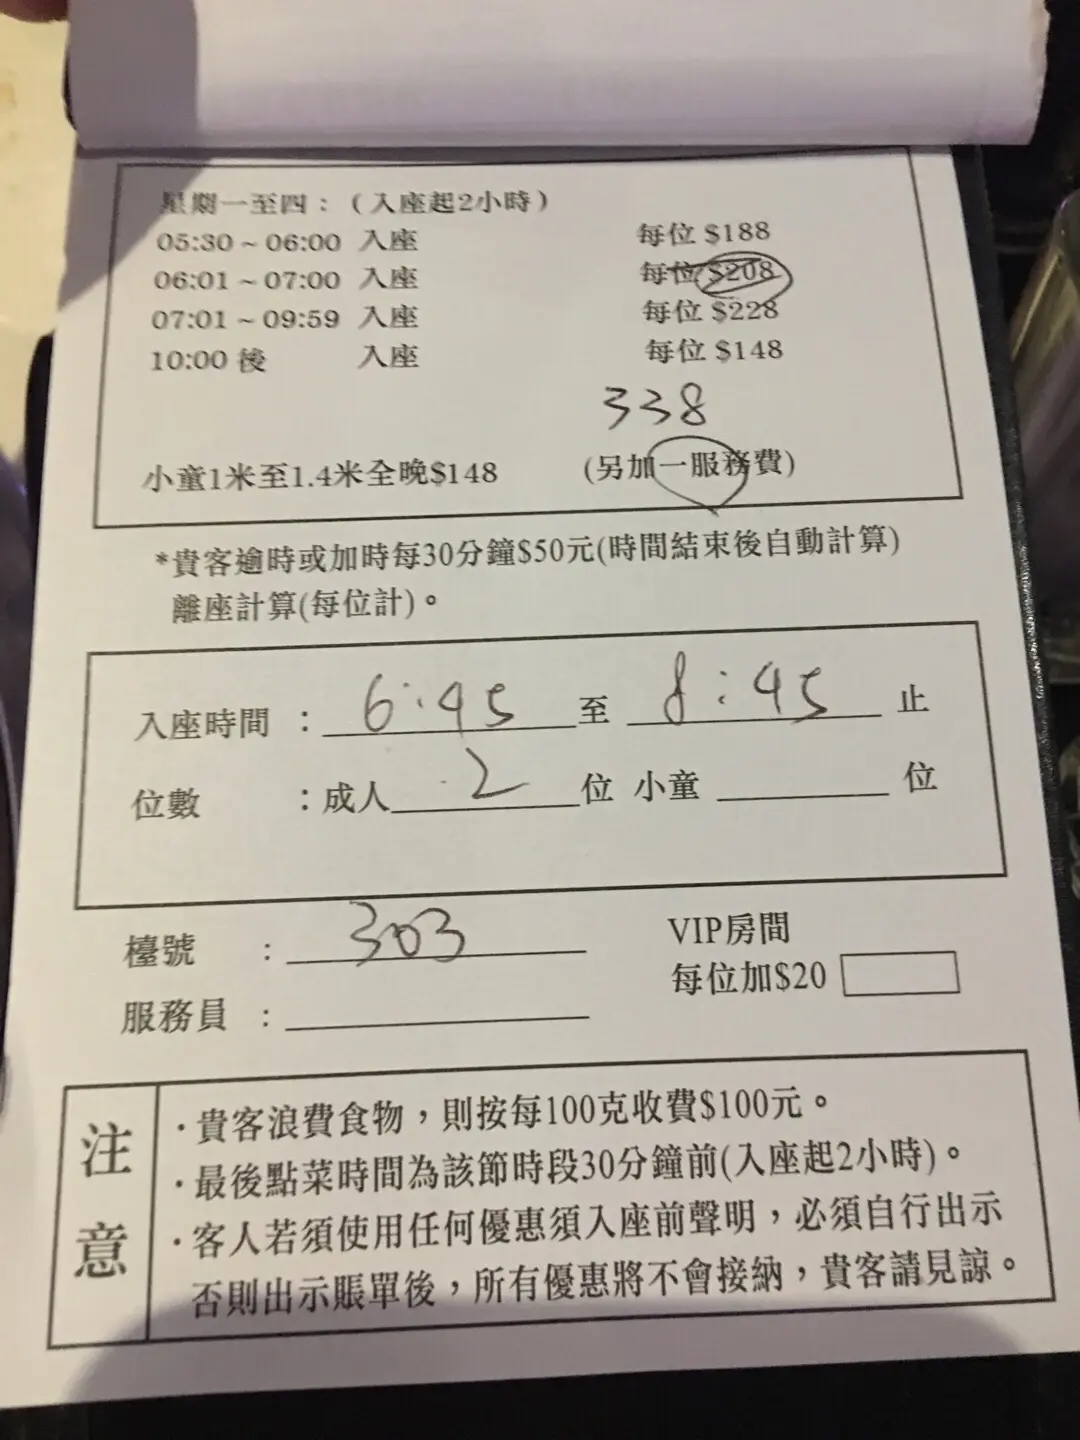 星期一至四：（入座起2小時）
05:30 ~ 06:00 入座 每位 $188
06:01 ~ 07:00 入座 每位 $208
07:01 ~ 09:59 入座 每位 $228
10:00 後 入座 每位 $148
338
小童1米至1.4米全晚$148 (另加一服務費)
*貴客逾時或加時每30分鐘$50元(時間結束後自動計算)
離座計算(每位計)。
入座時間 : 6:45 至 8:45 止
位數 : 成人 2 位 小童 位
檯號 : 303
VIP房間
每位加$20
服務員 :
注意
·貴客浪費食物，則按每100克收費$100元。
·最後點菜時間為該節時段30分鐘前(入座起2小時)。
·客人若須使用任何優惠須入座前聲明，必須自行出示
否則出示賬單後，所有優惠將不會接納，貴客請見諒。